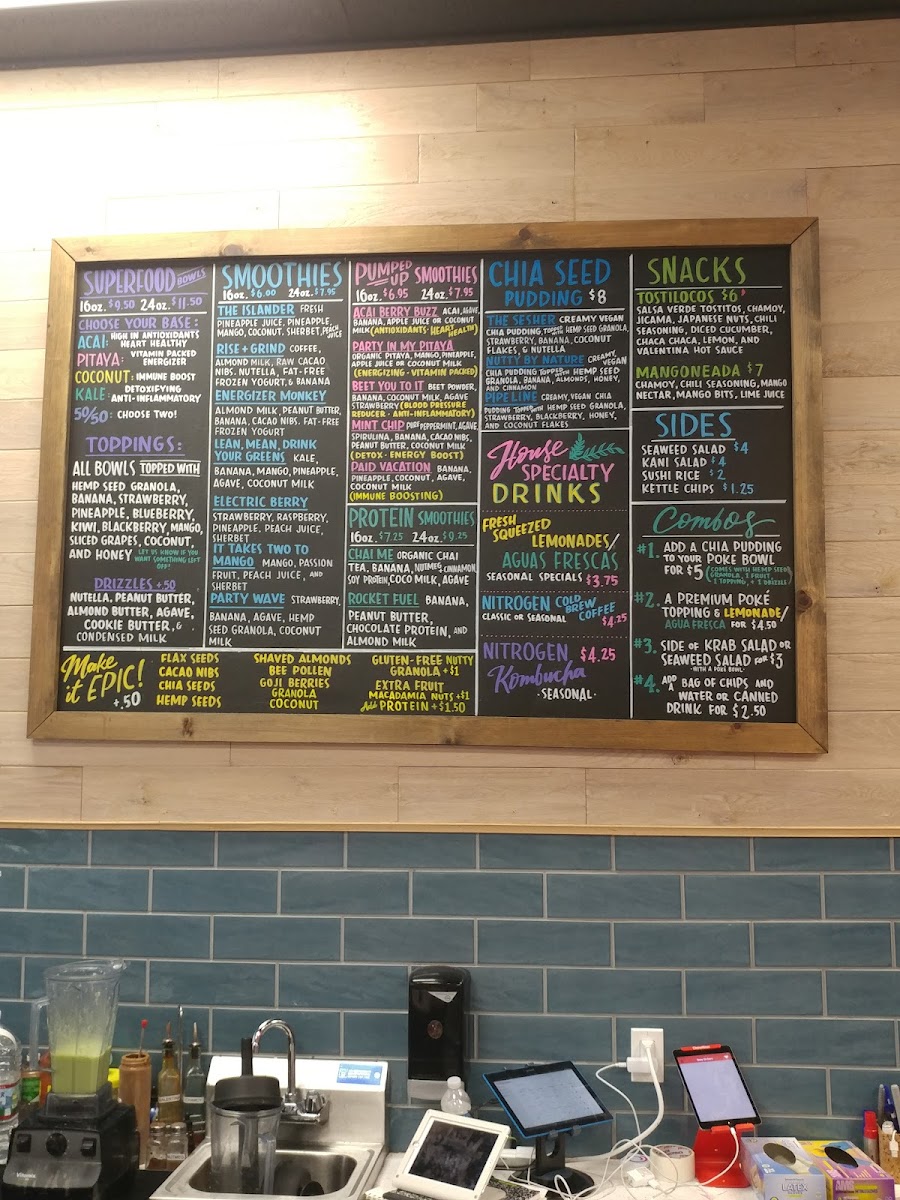 SUPERFOOD BOWLS
16oz. $9.50 24oz. $11.50
CHOOSE YOUR BASE:
ACAI: HIGH IN ANTIOXIDANTS
HEART HEALTHY
PITAYA: VITAMIN PACKED
ENERGIZER
COCONUT: IMMUNE BOOST
KALE: DETOXIFYING
ANTI-INFLAMMATORY
50/50: CHOOSE TWO!
TOPPINGS:
ALL BOWLS TOPPED WITH
HEMP SEED GRANOLA,
BANANA, STRAWBERRY,
PINEAPPLE, BLUEBERRY,
KIWI, BLACKBERRY, MANGO,
SLICED GRAPES, COCONUT,
AND HONEY LET US KNOW IF YOU
WANT SOMETHING LEFT
OFF"
DRIZZLES +.50
NUTELLA, PEANUT BUTTER,
ALMOND BUTTER, AGAVE,
COOKIE BUTTER, &
CONDENSED MILK
SMOOTHIES
16oz. $6.00 24oz. $7.95
THE ISLANDER FRESH
PINEAPPLE JUICE, PINEAPPLE,
MANGO, COCONUT, SHERBET, PEACH JUICE
RISE + GRIND COFFEE,
ALMOND MILK, RAW CACAO
NIBS, NUTELLA, FAT-FREE
FROZEN YOGURT, & BANANA
ENERGIZER MONKEY
ALMOND MILK, PEANUT BUTTER,
BANANA, CACAO NIBS, FAT-FREE
FROZEN YOGURT
LEAN, MEAN, DRINK
YOUR GREENS KALE,
BANANA, MANGO, PINEAPPLE,
AGAVE, COCONUT MILK
ELECTRIC BERRY
STRAWBERRY, RASPBERRY,
PINEAPPLE, PEACH JUICE,
SHERBET
IT TAKES TWO TO
MANGO MANGO, PASSION
FRUIT, PEACH JUICE, AND
SHERBET
PARTY WAVE STRAWBERRY,
BANANA, AGAVE, HEMP
SEED GRANOLA, COCONUT
MILK
PUMPED UP SMOOTHIES
16oz. $6.95 24oz. $7.95
ACAI BERRY BUZZ ACAI, AGAVE,
BANANA, APPLE JUICE OR COCONUT
MILK (ANTIOXIDANTS · HEART HEALTH)
PARTY IN MY PITAYA
ORGANIC PITAYA, MANGO, PINEAPPLE,
APPLE JUICE OR COCONUT MILK
(ENERGIZING · VITAMIN PACKED)
BEET YOU TO IT BEET POWDER,
BANANA, COCONUT MILK, AGAVE
STRAWBERRY (BLOOD PRESSURE
REDUCER · ANTI-INFLAMMATORY)
MINT CHIP PURE PEPPERMINT, AGAVE,
SPIRULINA, BANANA, CACAO NIBS,
PEANUT BUTTER, COCONUT MILK
(DETOX · ENERGY BOOST)
PAID VACATION BANANA,
PINEAPPLE, COCONUT, AGAVE,
COCONUT MILK
(IMMUNE BOOSTING)
PROTEIN SMOOTHIES
16oz. $7.25 24oz. $9.25
CHAI ME ORGANIC CHAI
TEA, BANANA, NUTMEG, CINNAMON,
SOY PROTEIN, COCO MILK, AGAVE
ROCKET FUEL BANANA,
PEANUT BUTTER,
CHOCOLATE PROTEIN, AND
ALMOND MILK
Make it EPIC!
+.50
FLAX SEEDS
CACAO NIBS
CHIA SEEDS
HEMP SEEDS
SHAVED ALMONDS
BEE POLLEN
GOJI BERRIES
GRANOLA
COCONUT
GLUTEN-FREE NUTTY
GRANOLA +$1
EXTRA FRUIT
MACADAMIA NUTS +$1
Add PROTEIN +$1.50
CHIA SEED
PUDDING $8
THE SESHER CREAMY VEGAN
CHIA PUDDING, TOPPED WITH HEMP SEED GRANOLA,
STRAWBERRY, BANANA, COCONUT
FLAKES, & NUTELLA
NUTTY BY NATURE CREAMY, VEGAN
CHIA PUDDING TOPPED WITH HEMP SEED
GRANOLA, BANANA, ALMONDS, HONEY,
AND CINNAMON
PIPE LINE CREAMY, VEGAN CHIA
PUDDING TOPPED WITH HEMP SEED GRANOLA,
STRAWBERRY, BLACKBERRY, HONEY,
AND COCONUT FLAKES
House
SPECIALTY
DRINKS
FRESH
SQUEEZED
LEMONADES/
AGUAS FRESCAS
SEASONAL SPECIALS $3.75
NITROGEN COLD BREW
COFFEE
CLASSIC OR SEASONAL $4.25
NITROGEN $4.25
Kombucha
·SEASONAL·
SNACKS
TOSTILOCOS $6
SALSA VERDE TOSTITOS, CHAMOY,
JICAMA, JAPANESE NUTS, CHILI
SEASONING, DICED CUCUMBER,
CHACA CHACA, LEMON, AND
VALENTINA HOT SAUCE
MANGONEADA $7
CHAMOY, CHILI SEASONING, MANGO
NECTAR, MANGO BITS, LIME JUICE
SIDES
SEAWEED SALAD $4
KANI SALAD $4
SUSHI RICE $2
KETTLE CHIPS $1.25
Combos
#1. ADD A CHIA PUDDING
TO YOUR POKE BOWL
FOR $5 (COMES WITH HEMP SEED
GRANOLA, 1 FRUIT
1 TOPPING, + 1 DRIZZLE)
#2. A PREMIUM POKÉ
TOPPING & LEMONADE/
AGUA FRESCA FOR $4.50
#3. SIDE OF KRAB SALAD OR
SEAWEED SALAD FOR $3
·WITH A POKE BOWL·
#4. ADD A BAG OF CHIPS AND
WATER OR CANNED
DRINK FOR $2.50
Vitamix
LATEX